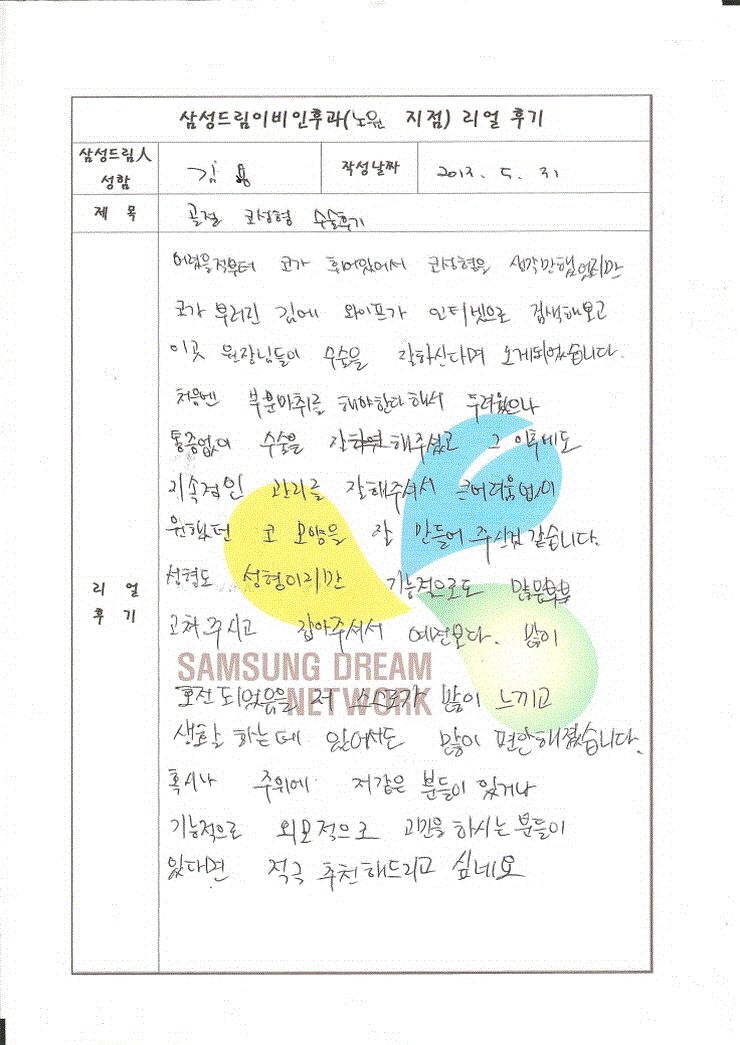 삼성드림이비인후과(노원 지점) 리얼 후기
삼성드림人 성함 김 용 작성날짜 2013. 5. 31
제 목 골절 코성형 수술후기
리 얼 후 기
어렸을적부터 코가 휘어있어서 코성형을 생각만했었지만
코가 부러진 김에 와이프가 인터넷으로 검색해보고
이곳 원장님들이 수술을 잘하신다며 오게되었습니다.
처음엔 부분마취를 해야한다해서 두려웠으나
통증없이 수술을 잘 해주셨고 그 이후에도
지속적인 관리를 잘해주셔서 큰어려움없이
원했던 코 모양을 잘 만들어 주신것 같습니다.
성형도 성형이지만 기능적으로도 많은부분
고쳐주시고 잡아주셔서 예전보다. 많이
호전 되었음을 저 스스로가 많이 느끼고
SAMSUNG DREAM
NETWORK
생활 하는데 있어서도 많이 편안해졌습니다.
혹시나 주위에 저같은 분들이 있거나
기능적으로 외모적으로 고민을 하시는 분들이
있다면 적극 추천해드리고 싶네요